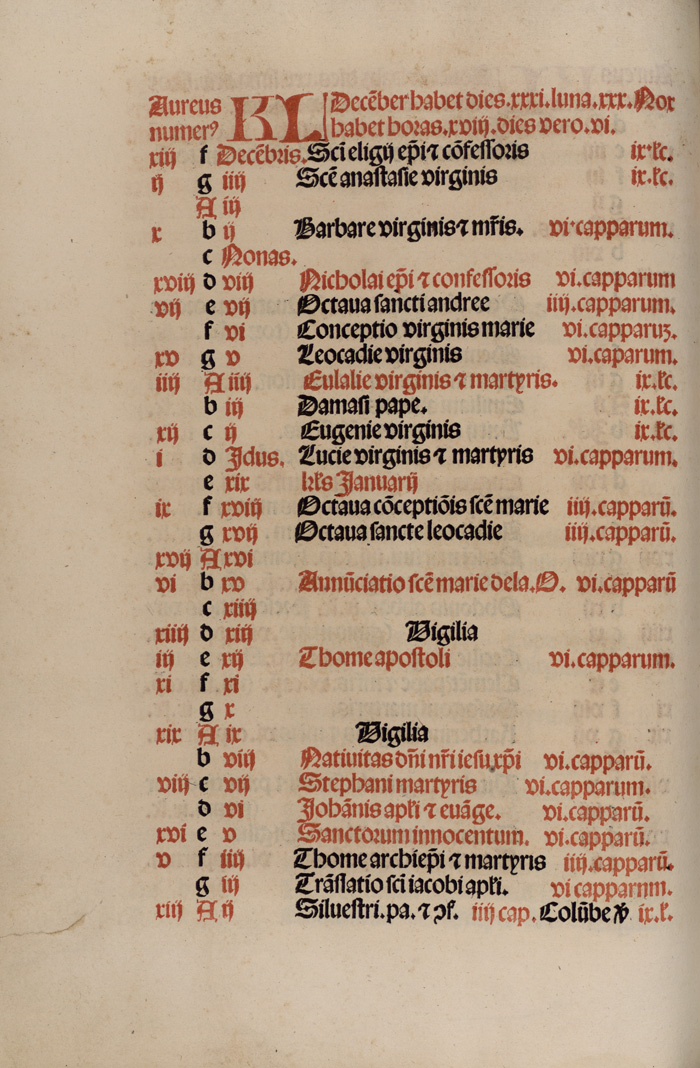 Aureus KL Decēber habet dies.xxxi.luna.xxx.Nox
numerꝰ habet horas.xviij.dies vero.vi.
xiij f Decēbris. Scī eligij ep̄i ⁊ cōfessoris ix.lc.
ij g iiij Scē anastasie virginis ix.lc.
A iij
x b ij Barbare virginis ⁊ mr̄is. vi.capparum.
c Nonas.
xviij d viij Nicholai ep̄i ⁊ confessoris vi.capparum
vij e vij Octaua sancti andree iiij.capparum.
f vi Conceptio virginis marie vi.capparuꝫ.
xv g v Leocadie virginis vi.caparum.
iiij A iiij Eulalie virginis ⁊ martyris. ix.lc.
b iij Damasi pape. ix.lc.
xij c ij Eugenie virginis ix.lc.
i d Idus. Lucie virginis ⁊ martyris vi.capparum.
e xix kl̄s Januarij
ix f xviij Octaua cōceptiōis scē marie iiij.capparū.
g xvij Octaua sancte leocadie iiij.capparū.
xvij A xvi
vi b xv Annūciatio scē marie dela.O. vi.capparū
c xiiij
xiiij d xiij Vigilia
iij e xij Thome apostoli vi.capparum.
xi f xi
g x
xix A ix Vigilia
b viij Natiuitas dn̄i nr̄i iesu xp̄i vi.capparū.
viij c vij Stephani martyris vi.capparum.
d vi Johānis apl̄i ⁊ euāge. vi.capparū.
xvi e v Sanctorum innocentum. vi.capparū.
v f iiij Thome archiep̄i ⁊ martyris iiij.capparū.
g iij Trāslatio sci iacobi apl̄i. vi capparum.
xiij A ij Siluestri.pa.⁊ ↄf. iiij cap. Colūbe ix.l.